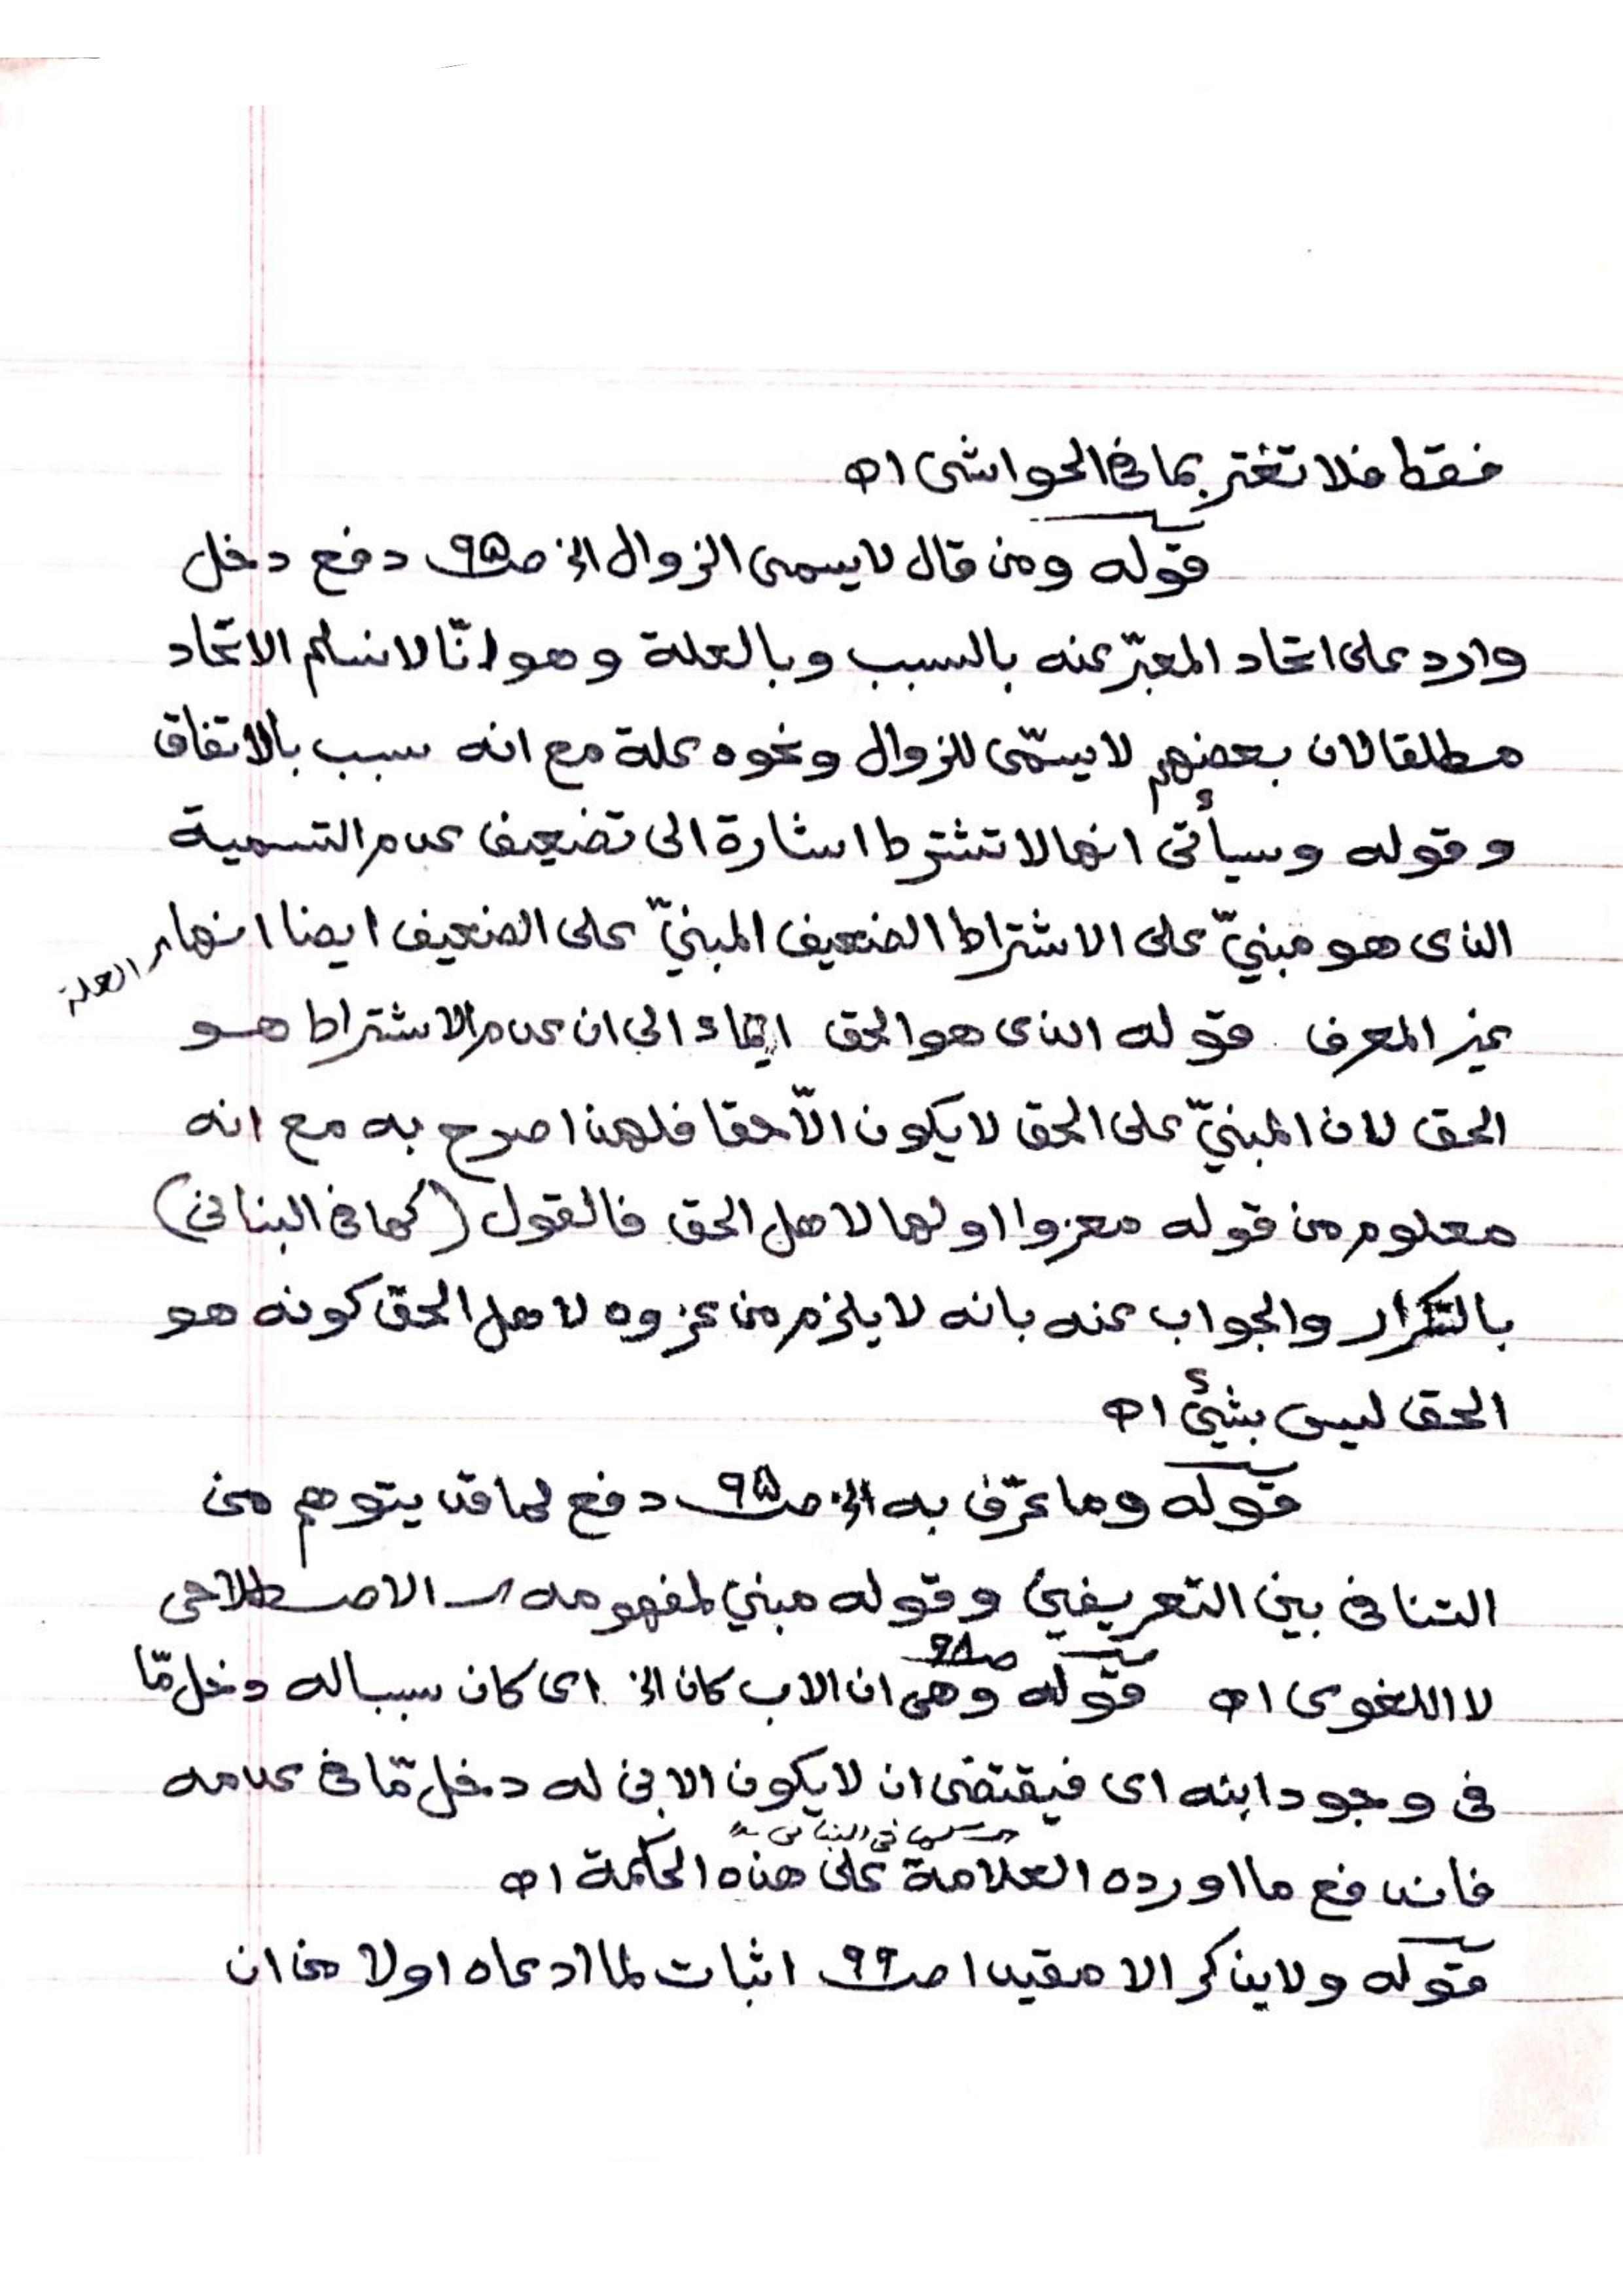 فقط فلا تغتر بما في الحواشى اه
قوله ومن قال لا يسمى الزوال الخ صـ٩٥ دفع دخل
وارد على اتحاد المعبّر عنه بالسبب وبالعلة وهو انّا لا نسلم الاتّحاد
مطلقا لان بعضهم لا يسمّى للزوال ونحوه علة مع انه سبب بالاتفاق
وقوله وسيأتى انها لا تشترط اشارة الى تضعيف عدم التسمية
الذى هو مبنيّ على الاشتراط الضعيف المبنيّ على الضعيف ايضا انها
العلة
غير المعرف قوله الذى هو الحق ايماء الى ان عدم الاشتراط هو
الحق لان المبنيّ على الحق لا يكون الّا حقا فلهذا صرح به مع انه
معلوم من قوله معزوا اولها لاهل الحق فالقول (كما في البنانى)
بالتكرار والجواب عنه بانه لا يلزم من عزوه لاهل الحق كونه هو
الحق ليس بشيئ اه
قوله وما عرّف به الخ صـ٩٥ دفع لما قد يتوهم من
التنافى بين التعريفين وقوله مبني لمفهومه الاصطلاحى
لا اللغوى اه قوله وهى ان الاب كان الخ صـ٩٨ اى كان سببا له دخل مّا
فى وجود ابنه اى فيقتضى ان لا يكون الابن له دخل مّا فى عدمه
كما فى البنانى
فاندفع ما اورده العلامة على هذه الحكمة اه
قوله ولا يذكر الا مقيدا صـ٩٩ اثبات لما ادعاه اولا من ان